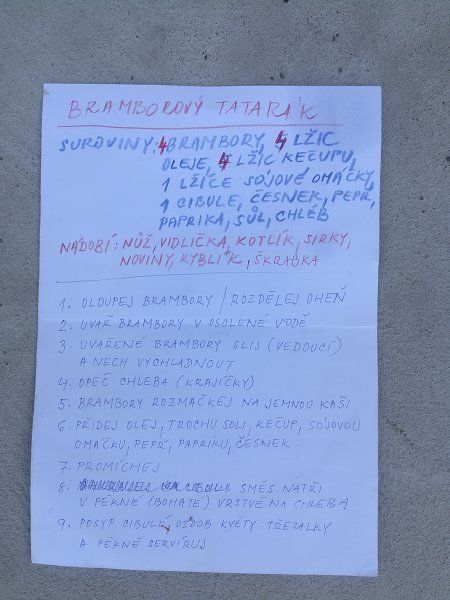 BRAMBOROVÝ TATARÁK
SUROVINY: 4 BRAMBORY, 4 LŽIC
OLEJE, 4 LŽIC KEČUPU,
1 LŽÍCE SÓJOVÉ OMÁČKY,
1 CIBULE, ČESNEK, PEPŘ,
PAPRIKA, SŮL, CHLÉB
NÁDOBÍ: NŮŽ, VIDLIČKA, KOTLÍK, SIRKY,
NOVINY, KYBLÍK, ŠKRABKA
1. OLOUPEJ BRAMBORY / ROZDĚLEJ OHEŇ
2. UVAŘ BRAMBORY V OSOLENÉ VODĚ
3. UVAŘENÉ BRAMBORY SLIJ (VEDOUCÍ)
A NECH VYCHLADNOUT
4. OPEČ CHLEBA (KRAJÍČKY)
5. BRAMBORY ROZMAČKEJ NA JEMNOU KAŠI
6. PŘIDEJ OLEJ, TROCHU SOLI, KEČUP, SÓJOVOU
OMÁČKU, PEPŘ, PAPRIKU, ČESNEK
7. PROMÍCHEJ
8. SMĚS NATŘI
V PĚKNÉ (BOHATÉ) VRSTVĚ NA CHLEBA
9. POSYP CIBULÍ, OZDOB KVĚTY TŘEZALKY
A PĚKNĚ SERVÍRUJ